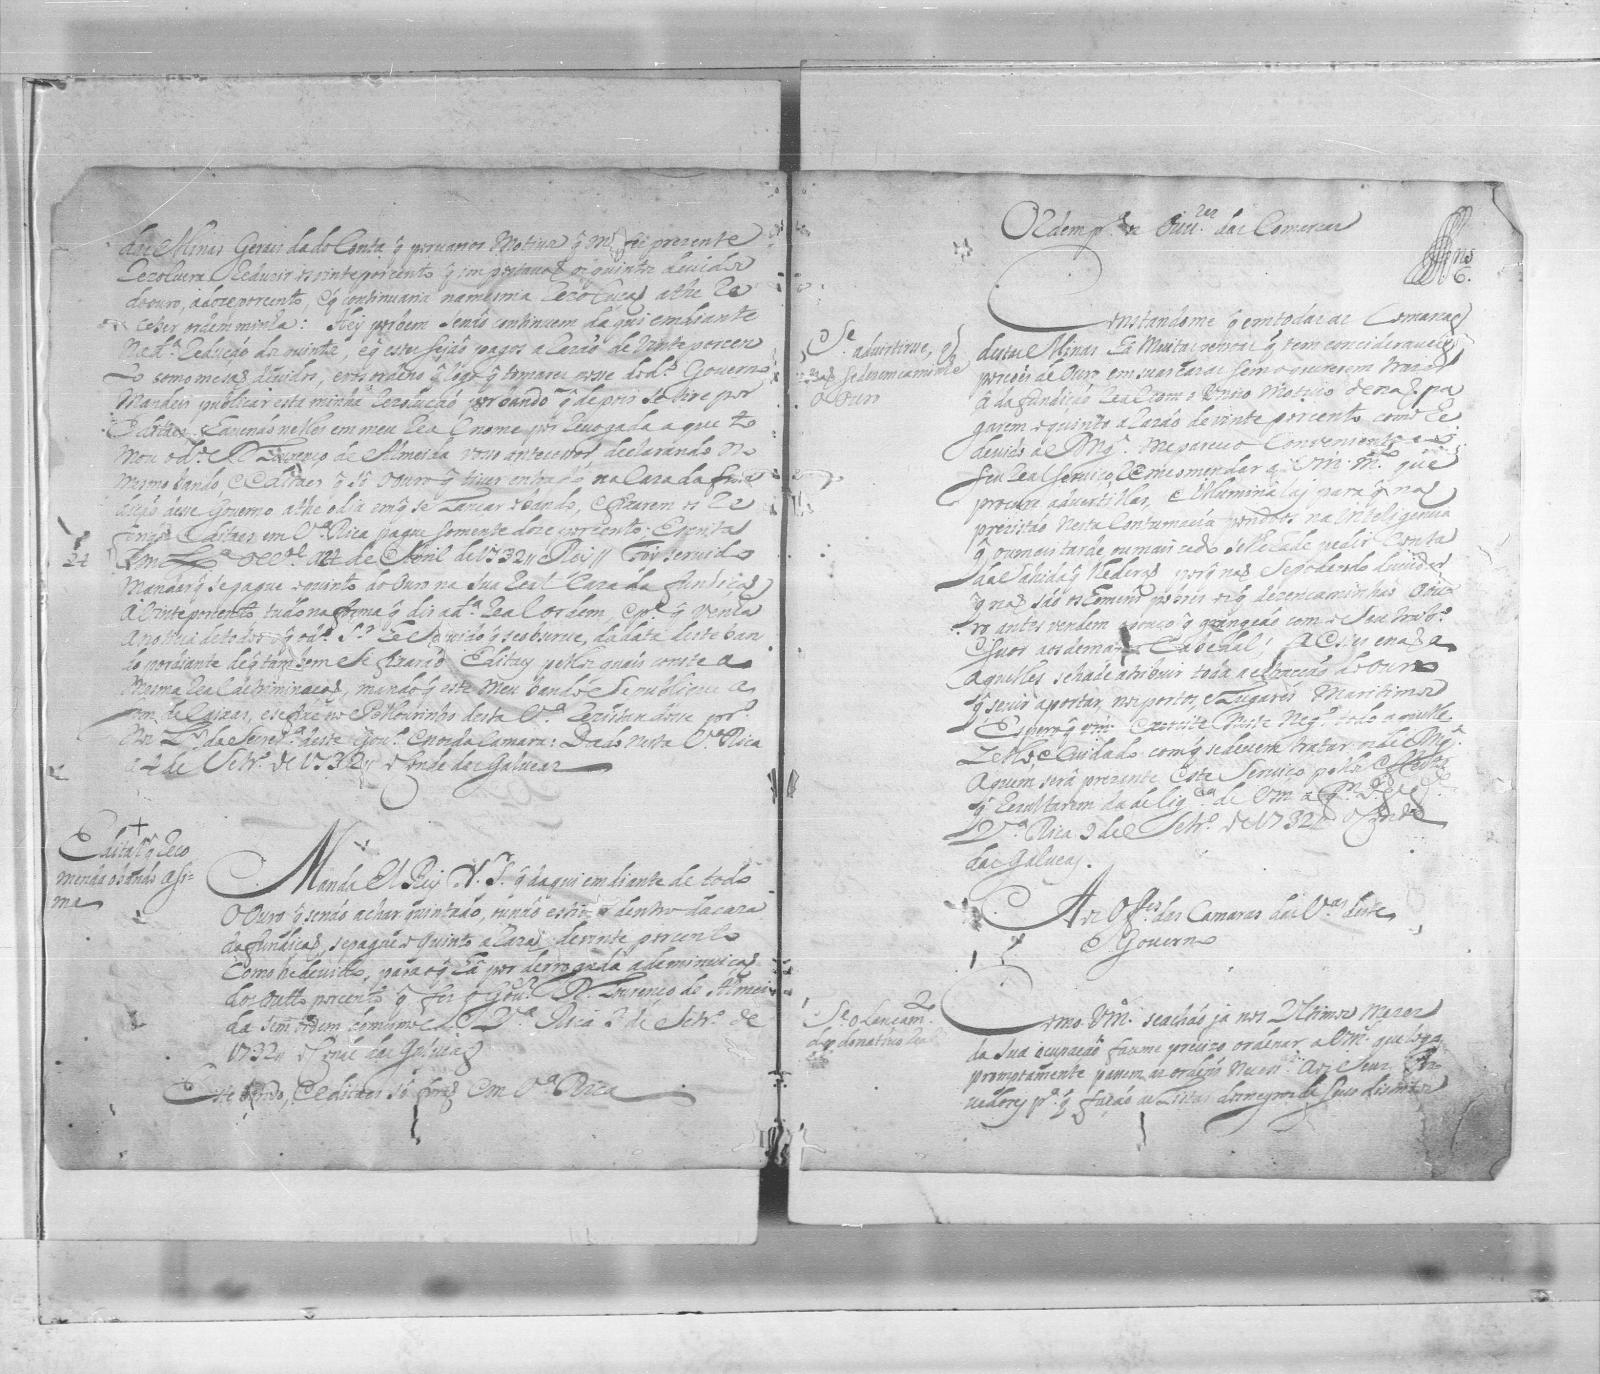 das Minas Gerais dado Conta q̃ por varios Motivos q̃ me fes prezente
Rezolvera Reduzir os vinte por cento q̃ importavaõ os quintos devidos
do ouro, a doze por cento, e q̃ continuaria na mesma Rezoluçaõ athe Re
ceber ordem minha: Hey por bem se naõ continue daqui em diante
na d.ª Reduçaõ dos quintos, e q̃ estes sejaõ pagos a Razaõ de Vinte por cen
to como me saõ devidos, e vos ordeno q̃ logo q̃ tomares posse do d.º Governo
Mandeis publicar esta minha Rezoluçaõ por bando q̃ depois se fixe por
Editaes havendo nelles em meu Real nome por Revogada a que to
mou o d.º D. Lourenço de Almeida vosso antecessor declarando no
mesmo bando, e Editaes q̃ só o ouro q̃ tiver entrado na Caza da fun
diçaõ desse Governo athe o dia em q̃ se Lançar o bando, e fixarem os Re
feridos Editaes em V.ª Rica pague somente doze por cento. Escrita
24
em Lx.ª occ.al a 24 de Abril de 1732// Rey// Foi servido
Mandar q̃ se pague o quinto do ouro na Sua Real Caza da fundiçaõ
a Vinte por cento tudo na forma q̃ diz a d.ª Real ordem, e p.ª q̃ venha
a noticia de todos q̃ o d.º S.r he servido q̃ se observe, da data deste ban
do por diante de q̃ tambem se fixaraõ Editaes pellos quais conste a
mesma Real determinaçaõ, mando q̃ este meu bando se publique a
som de Caixas, e se fixe no Pelourinho desta V.ª Rezistandosse pr.º
nos L.os da Secret.ª deste Gov.º e no da Camara: Dado nesta V.ª Rica
a 2 de Setr.º de 1732// o Conde das Galveas
Edital q̃ Reco
menda o bando asi=
ma
Manda El Rey N. S. q̃ daqui em diante de todo
o ouro q̃ senaõ achar quintado, e naõ estiver dentro da caza
da fundiçaõ, se pague o quinto a Razaõ de vinte por cento
como he devido, para o q̃ ha por derrogada a deminuiçaõ
dos outto por cento q̃ fez o Gov.or D. Lourenço de Almei
da sem ordem do mesmo S.r V.ª Rica 2 de Setr.º de
1732// o Conde das Galveas
Este bando, e Editaes só foraõ em V.ª Rica
Ordem p.ª os Ouv.res das Comarcas
Se advirtirem, q̃
naõ se desencaminhe
o ouro
Constandome q̃ em todas as Comarcas
destas Minas ha muitas pessoas q̃ tem consideraveis
porcoes de Ouro em suas cazas sem o quererem trazer
á da fundiçaõ Real com o Unico Motivo de naõ pa
garem o quinto a Razaõ de vinte por cento como he
devido a S. Mg.e me pareceo Conveniente ao
seu Real serviço Recomendar a Vm. m.to que
procure advertillas, e illuminálas para q̃ naõ
prezistaõ nesta Contumacia pondoos na inteligencia
q̃ ou mais tarde ou mais cedo se lhe ade pedir Conta
da Sahida q̃ lhe deraõ porq̃ naõ se podendo duvidar
q̃ naõ saõ os Homens pobres os q̃ desencaminhaõ o ou
ro antes vendem o pouco q̃ grangeaõ com o Seu trab.º
e suor aos de mayor Cabedal, a estes e naõ a
aquelles se ha de atribuir toda a extracçaõ do ouro
q̃ se vir aportar, nos portos, e Lugares Maritimos
Espero q̃ Vm. exercite neste Neg.º todo aquelle
zello, e Cuidado com q̃ se devem tratar os de S. Mg.e
a quem será prezente este Serviço pellos effeitos
q̃ Rezultarem da delig.ca de Vm. a q.m D.s g.de
V.ª Rica 2 de Setr.º de 1732// o Conde
das Galveas.
Aos Off.es das Camaras das V.as deste
Governo
Se o Lançam.to
do donativo Real
Como Vm.ces se achaõ ja nos Ultimos Mezes
da Sua ocupaçaõ fasseme precizo ordenar a Vm.ces que logo
promptamente passem as ordens necess.as aos Seus
p.ª q̃ façaõ as Listas dos negros de Seus districtos